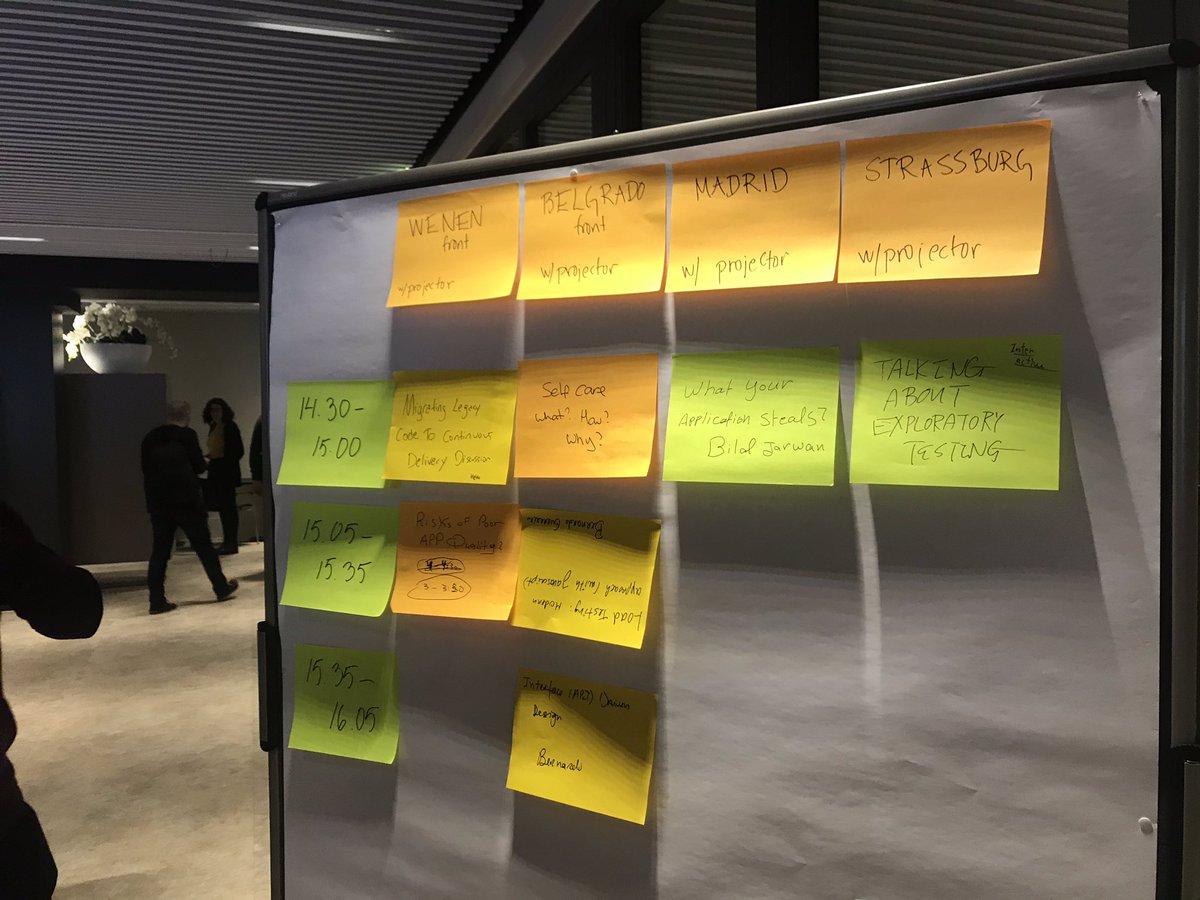 WENEN
front
w/projector
BELGRADO
front
w/projector
MADRID
w/ projector
STRASSBURG
w/projector
14.30-
15.00
Migrating Legacy
Code To Continuous
Delivery Discussion
Self care
What? How?
Why?
What Your
Application Steals?
Bilal Jarwan
Inter
active
TALKING
ABOUT
EXPLORATORY
TESTING
15.05-
15.35
Risks of Poor
APP Quality?
3-3:30
Load Testing: Modern
approach (with Javascript)
Bernardo
15.35-
16.05
Interface (API) Driven
Design
Bernardo